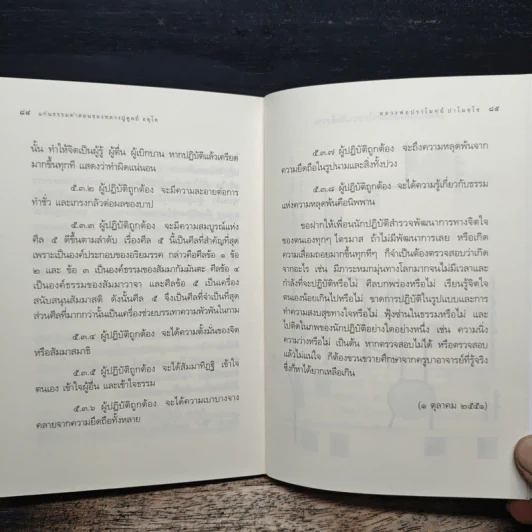 ๘๔ แก่นธรรมคำสอนของหลวงปู่ดูลย์ อตุโล
นั้น ทำให้จิตเป็นผู้รู้ ผู้ตื่น ผู้เบิกบาน หากปฏิบัติแล้วเครียด
มากขึ้นทุกที แสดงว่าทำผิดแน่นอน
๕.๓.๒ ผู้ปฏิบัติถูกต้อง จะมีความละอายต่อการ
ทำชั่ว และเกรงกลัวต่อผลของบาป
๕.๓.๓ ผู้ปฏิบัติถูกต้อง จะมีความสมบูรณ์แห่ง
ศีล ๕ ดีขึ้นตามลำดับ เรื่องศีล ๕ นี้เป็นศีลที่สำคัญที่สุด
เพราะเป็นองค์ประกอบของอริยมรรค กล่าวคือศีลข้อ ๑ ข้อ
๒ และข้อ ๓ เป็นองค์ธรรมของสัมมากัมมันตะ ศีลข้อ ๔
เป็นองค์ธรรมของสัมมาวาจา และศีลข้อ ๕ เป็นเครื่อง
สนับสนุนสัมมาสติ ดังนั้นศีล ๕ จึงเป็นศีลที่จำเป็นที่สุด
ส่วนศีลที่มากกว่านั้นเป็นเครื่องช่วยบรรเทาความพัวพันในกาม
๕.๓.๔ ผู้ปฏิบัติถูกต้อง จะได้ความตั้งมั่นของจิต
หรือสัมมาสมาธิ
๕.๓.๕ ผู้ปฏิบัติถูกต้อง จะได้สัมมาทิฏฐิ เข้าใจ
ตนเอง เข้าใจผู้อื่น และเข้าใจธรรม
๕.๓.๖ ผู้ปฏิบัติถูกต้อง จะได้ความเบาบางจาง
คลายจากความยึดถือทั้งหลาย
หลวงพ่อปราโมทย์ ปาโมชฺโช ๘๕
๕.๓.๗ ผู้ปฏิบัติถูกต้อง จะถึงความหลุดพ้นจาก
ความยึดถือในรูปนามและสิ่งทั้งปวง
๕.๓.๘ ผู้ปฏิบัติถูกต้อง จะได้ความรู้เกี่ยวกับธรรม
แห่งความหลุดพ้นคือนิพพาน
ขอฝากให้เพื่อนนักปฏิบัติสำรวจพัฒนาการทางจิตใจ
ของตนเองทุกๆ ไตรมาส ถ้าไม่มีพัฒนาการเลย หรือเกิด
ความเสื่อมถอยมากขึ้นทุกทีๆ ก็จำเป็นต้องตรวจสอบว่าเกิด
จากอะไร เช่น มีภาระหมกมุ่นทางโลกมากจนไม่มีเวลาและ
กำลังที่จะปฏิบัติหรือไม่ ศีลบกพร่องหรือไม่ เรียนรู้จิตใจ
ตนเองน้อยเกินไปหรือไม่ ขาดการปฏิบัติในรูปแบบและการ
ทำความสงบสุขทางใจหรือไม่ ฟุ้งซ่านในธรรมหรือไม่ และ
ไปติดในภพของนักปฏิบัติอย่างใดอย่างหนึ่ง เช่น ความนิ่ง
ความว่างหรือไม่ เป็นต้น หากตรวจสอบไม่ได้ หรือตรวจสอบ
แล้วไม่แน่ใจ ก็ต้องขวนขวายศึกษาจากครูบาอาจารย์ที่รู้จริง
ซึ่งก็หาได้ยากเหลือเกิน
(๑ ตุลาคม ๒๕๕๑)